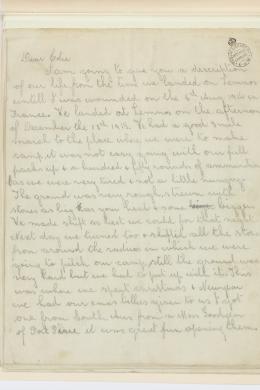 Dear Edie
I am going to give you a description
of our life from the time we landed on Lemnos
untill I was wounded on the 5th Aug 1916 in
France. We landed at Lemnos on the afternoon
of December the 15th 1915. We had a good 3 mile
march to the place where we were to make
camp it was not easy going with our full
packs up & a hundred & fifty rounds of ammunition
as we were very tired & not a little hungry.
The ground was very rough, strewn with
stones as big as your head & some bigger.
We made shift as best we could for that night.
Next day we turned too & shifted all the stones
from around the radius in which we were
going to pitch our camp, still the ground was
very hard but we had to put up with it. This
was where we spent christmas & Newyear
we had our xmas billies given to us I got
one from South Aus from a Miss
of Port Pirie it was great fun opening them.